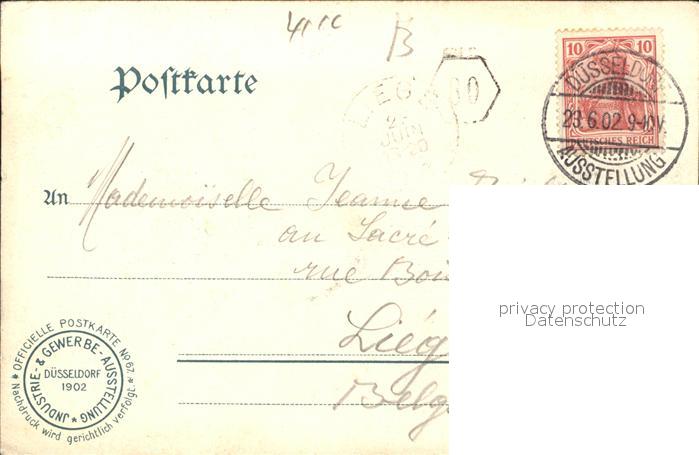 B
Postkarte
10 10
DEUTSCHES REICH
DÜSSELDORF
23.6.02 9-10V.
AUSSTELLUNG
LIEGE
JUIN
An Mademoiselle Jeanne
au Sacré
rue Boi
Liég
Belg
privacy protection
Datenschutz
* OFFICIELLE POSTKARTE No 97. *
Nachdruck wird gerichtlich verfolgt.
JNDUSTRIE- & GEWERBE-AUSSTELLUNG *
DÜSSELDORF
1902